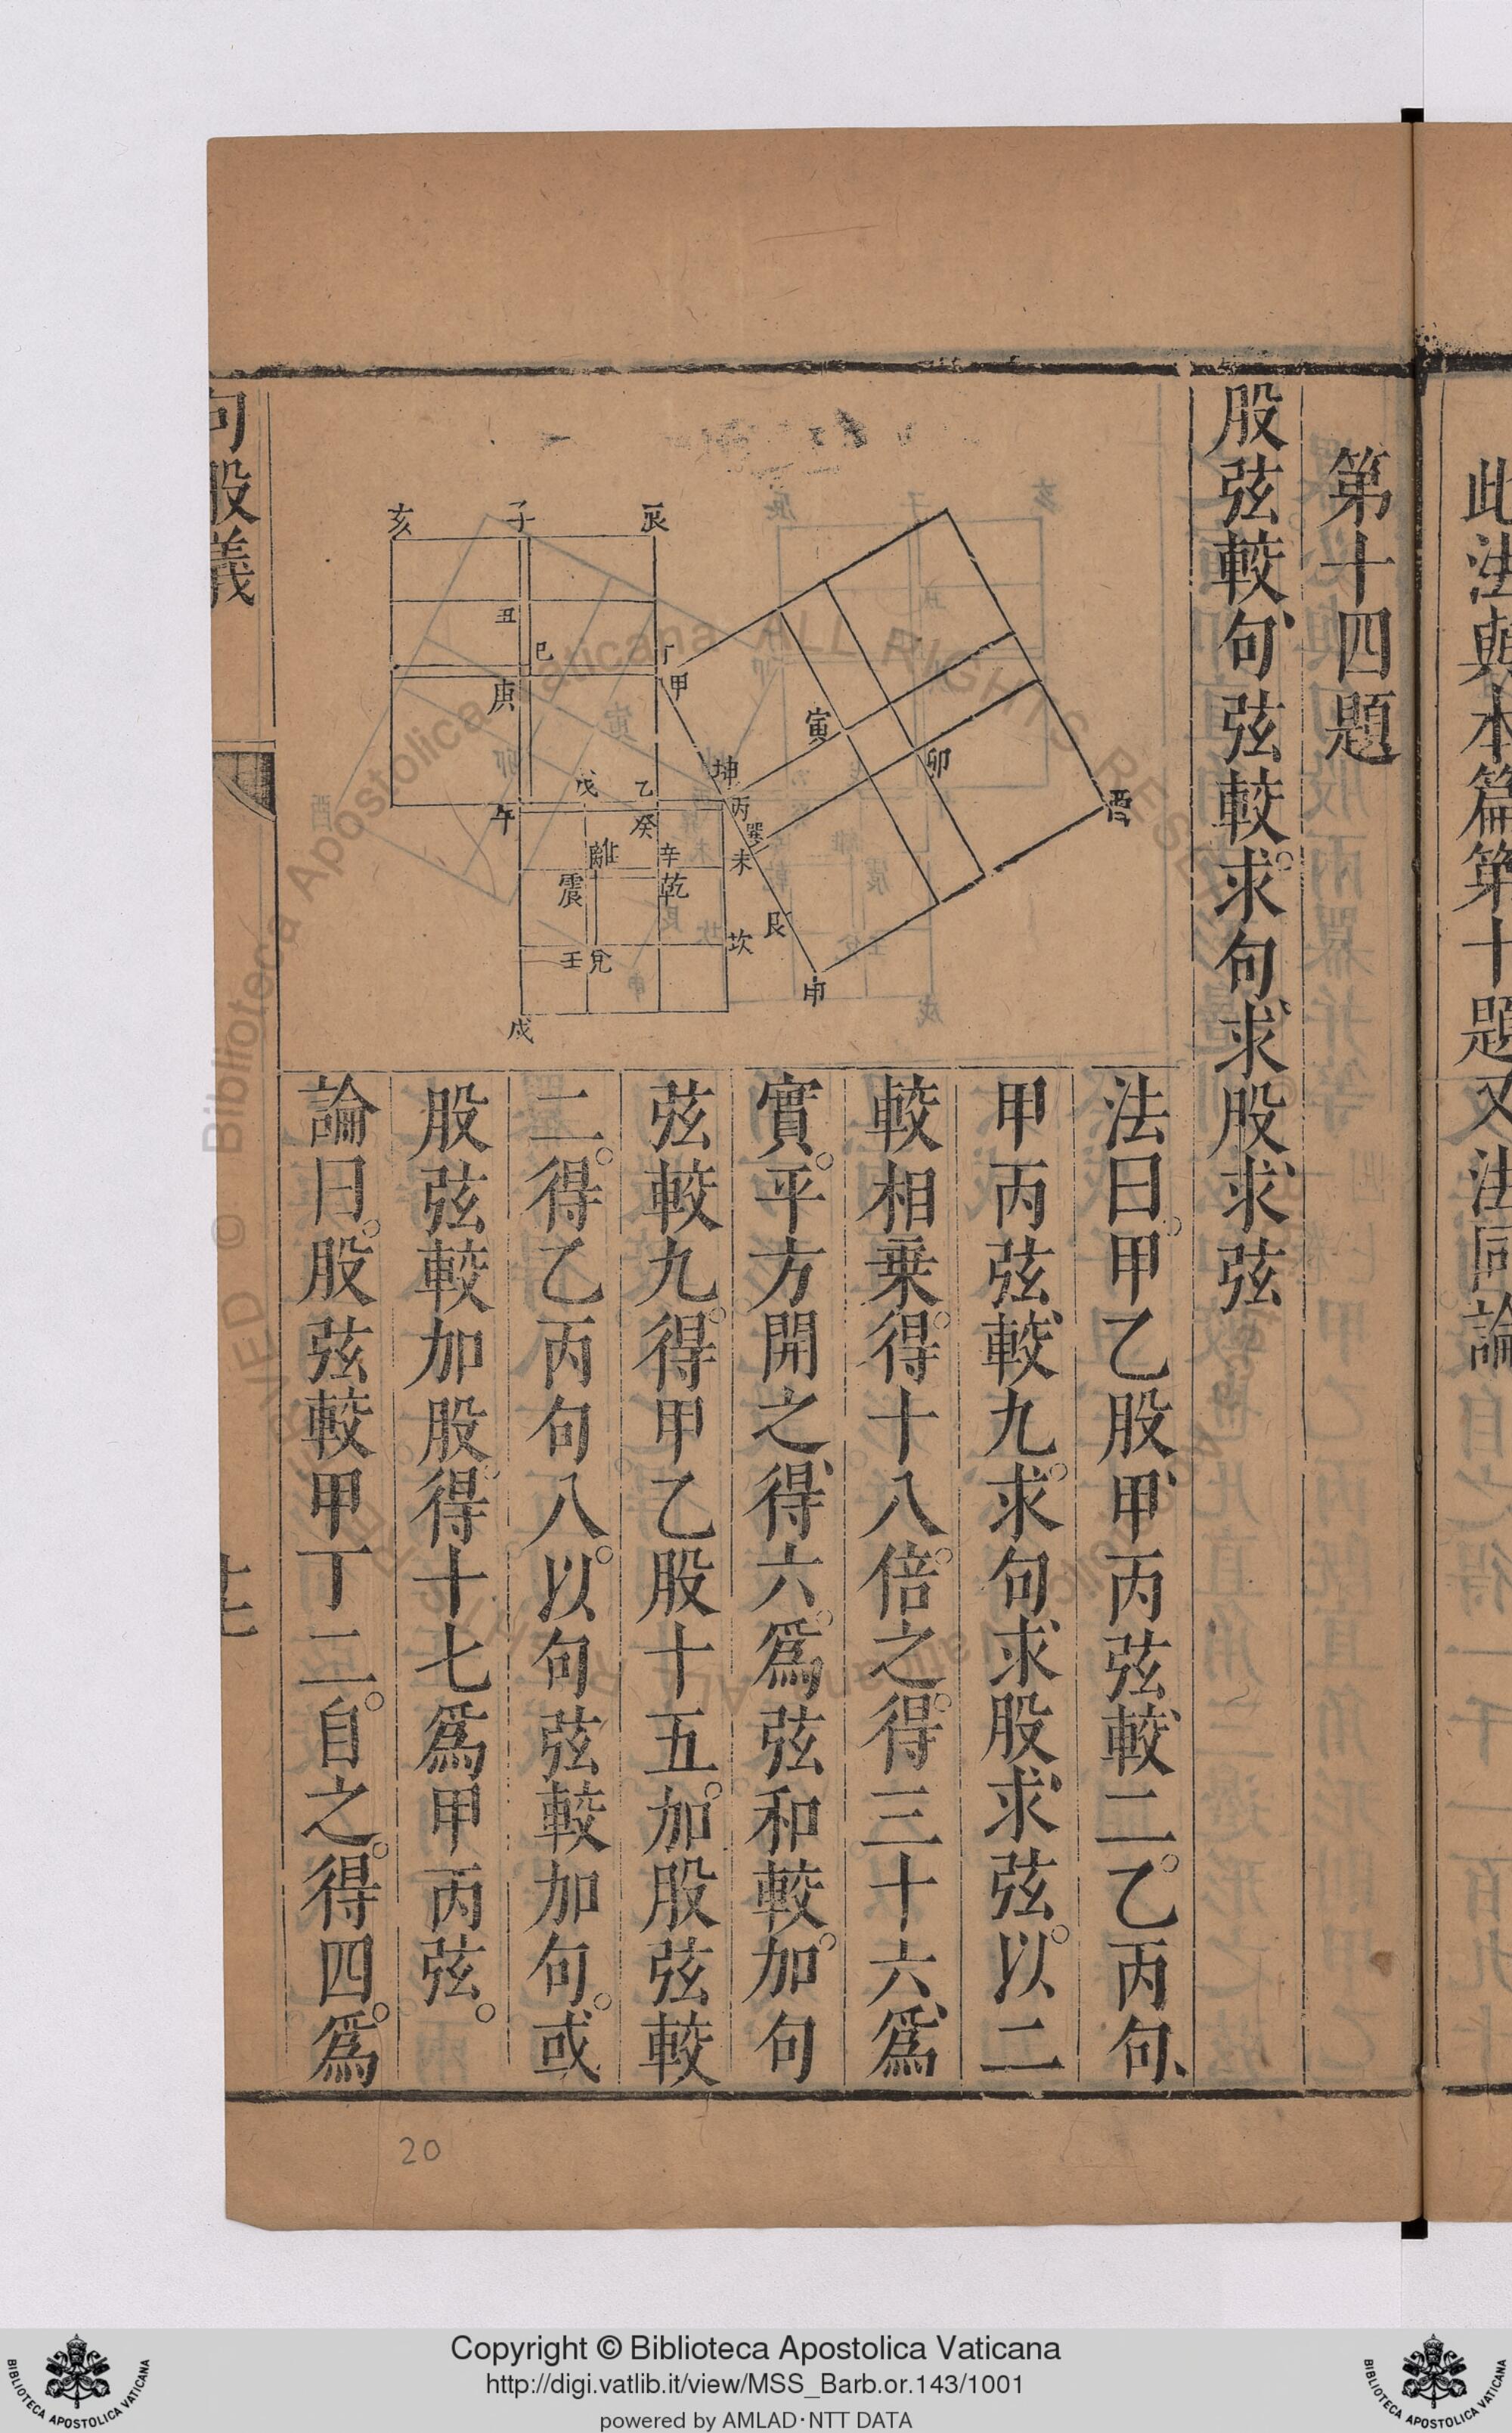 此法與本篇第十題又法同論
第十四題
股弦較句弦較求句求股求弦
法曰甲乙股甲丙弦較二乙丙句
甲丙弦較九求句求股求弦以二
較相乗得十八倍之得三十六爲
實平方開之得六爲弦和較加句
弦較九得甲乙股十五加股弦較
二得乙丙句八以句弦較加句或
股弦較加股得十七爲甲丙弦
論曰股弦較甲丁二自之得四爲
亥 子 辰
丑
巳 丁
庚 甲
寅
坤 卯
戊 乙 丙
午 癸 巽 酉
離 辛 未
震 乾
艮
坎
壬 兌
申
戌
句股義
20
Copyright © Biblioteca Apostolica Vaticana
http://digi.vatlib.it/view/MSS_Barb.or.143/1001
powered by AMLAD·NTT DATA
BIBLIOTECA APOSTOLICA VATICANA
BIBLIOTECA APOSTOLICA VATICANA